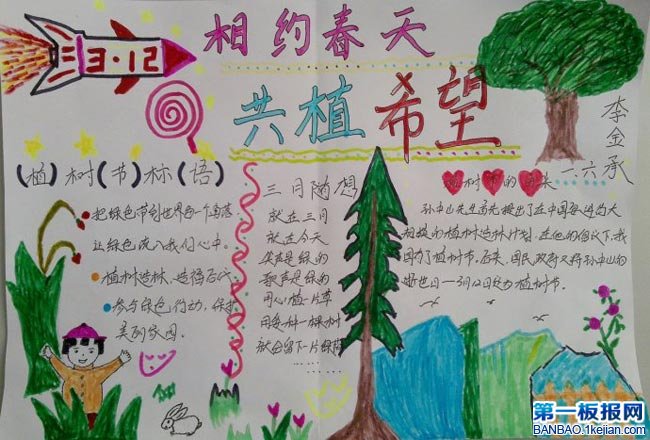 相约春天
共植希望
3·12
李金承
一.六
(植)树(节)标(语)
把绿色带到世界每一个角落
让绿色流入我们心中。
植树造林,造福后代
参与绿色行动,保护
美丽家园。
三月随想
就在三月
就在今天
笑声是绿的
歌声是绿的
用心植一片草
用爱种一棵树
就会留下一片绿荫
……
植树节的由来
孙中山先生首先提出了在中国每进行大
规模的植树造林计划,在他的倡议下,我
国有了植树节。后来,国民政府又将孙中山的
逝世日—3月12日定为植树节。
第一板报网
BANBAO.1kejian.com